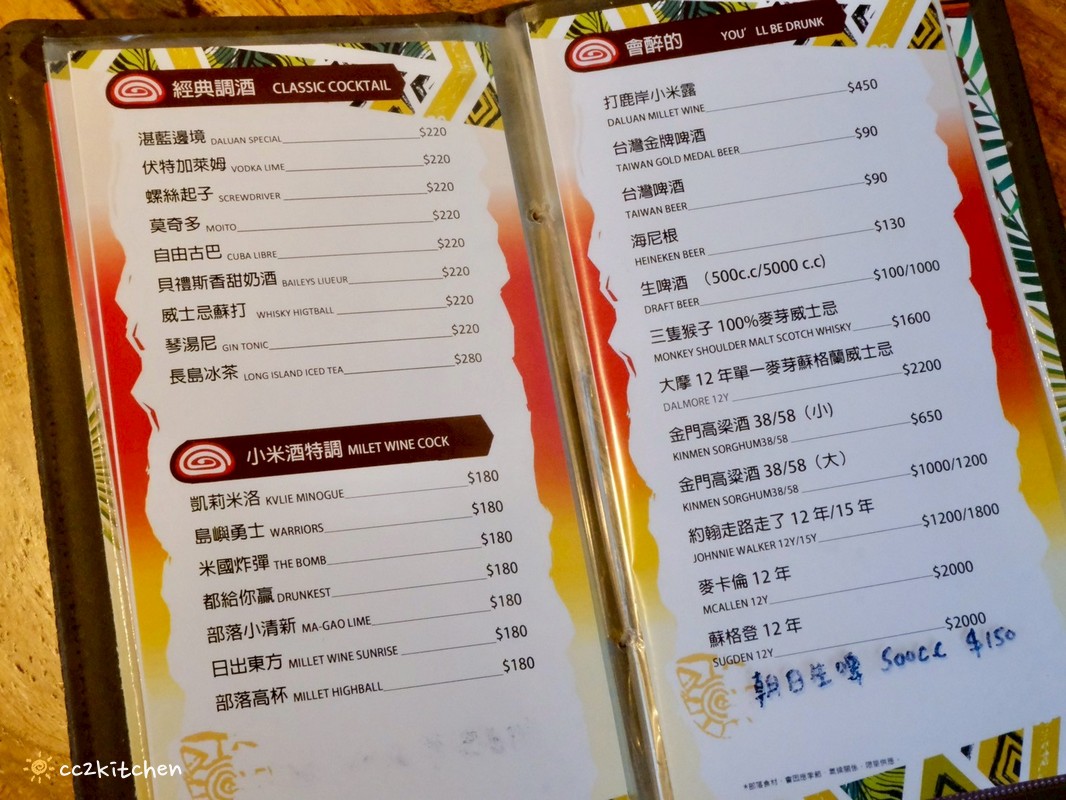 經典調酒 CLASSIC COCKTAIL
湛藍邊境 DALUAN SPECIAL $220
伏特加萊姆 VODKA LIME $220
螺絲起子 SCREWDRIVER $220
莫奇多 MOITO $220
自由古巴 CUBA LIBRE $220
貝禮斯香甜奶酒 BAILEYS LIUEUR $220
威士忌蘇打 WHISKY HIGTBALL $220
琴湯尼 GIN TONIC $220
長島冰茶 LONG ISLAND ICED TEA $280
小米酒特調 MILET WINE COCK
凱莉米洛 KVLIE MINOGUE $180
島嶼勇士 WARRIORS $180
米國炸彈 THE BOMB $180
都給你贏 DRUNKEST $180
部落小清新 MA-GAO LIME $180
日出東方 MILLET WINE SUNRISE $180
部落高杯 MILLET HIGHBALL $180
會醉的 YOU'LL BE DRUNK
打鹿岸小米露
DALUAN MILLET WINE $450
台灣金牌啤酒
TAIWAN GOLD MEDAL BEER $90
台灣啤酒
TAIWAN BEER $90
海尼根
HEINEKEN BEER $130
生啤酒 (500c.c/5000 c.c)
DRAFT BEER $100/1000
三隻猴子 100%麥芽威士忌
MONKEY SHOULDER MALT SCOTCH WHISKY $1600
大摩 12 年單一麥芽蘇格蘭威士忌
DALMORE 12Y $2200
金門高梁酒 38/58（小）
KINMEN SORGHUM38/58 $650
金門高粱酒 38/58（大）
KINMEN SORGHUM38/58 $1000/1200
約翰走路走了 12 年/15 年
JOHNNIE WALKER 12Y/15Y $1200/1800
麥卡倫 12 年
MCALLEN 12Y $2000
蘇格登 12 年
SUGDEN 12Y $2000
朝日生啤 500c.c $150
cc2kitchen